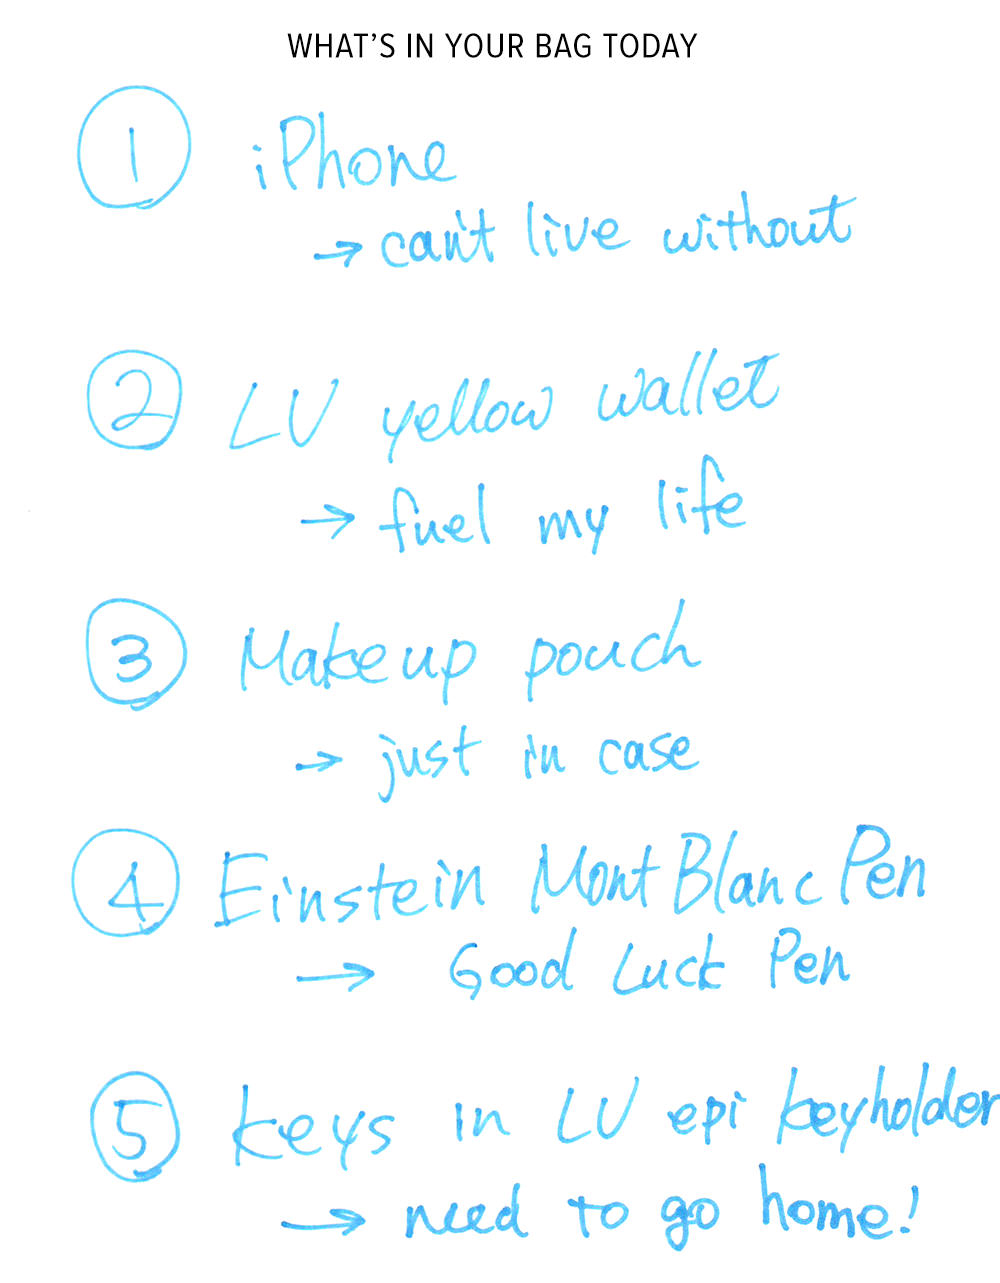 WHAT'S IN YOUR BAG TODAY
1 iPhone
→ can't live without
2 LV yellow wallet
→ fuel my life
3 Makeup pouch
→ just in case
4 Einstein Mont Blanc Pen
→ Good Luck Pen
5 keys in LV epi keyholder
→ need to go home!